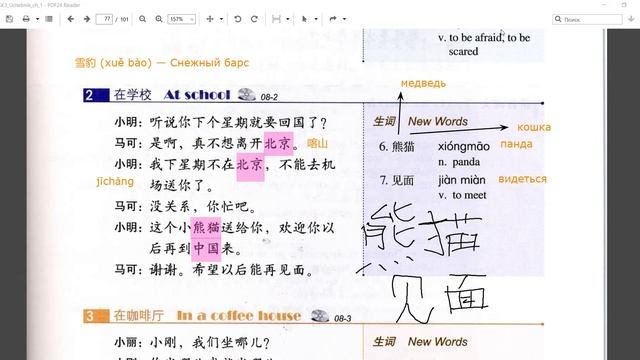 GE3_Uchebnik_ch_1 - PDF24 Reader
77 / 101
157%
Поиск
v. to be afraid, to be
scared
雪豹 (xuě bào) — Снежный барс
медведь
2 在学校 At school 08-2
小明：听说你下个星期就要回国了？
马可：是啊，真不想离开北京。
喀山
小明：我下星期不在北京，不能去机
场送你了。
jīchǎng
马可：没关系，你忙吧。
小明：这个小熊猫送给你，欢迎你以
后再到中国来。
马可：谢谢。希望以后能再见面。
生词 New Words
кошка
6. 熊猫 xióngmāo панда
n. panda
7. 见面 jiàn miàn видеться
v. to meet
熊猫
见面
3 在咖啡厅 In a coffee house 08-3
小丽：小刚，我们坐哪儿？
生词 New Words